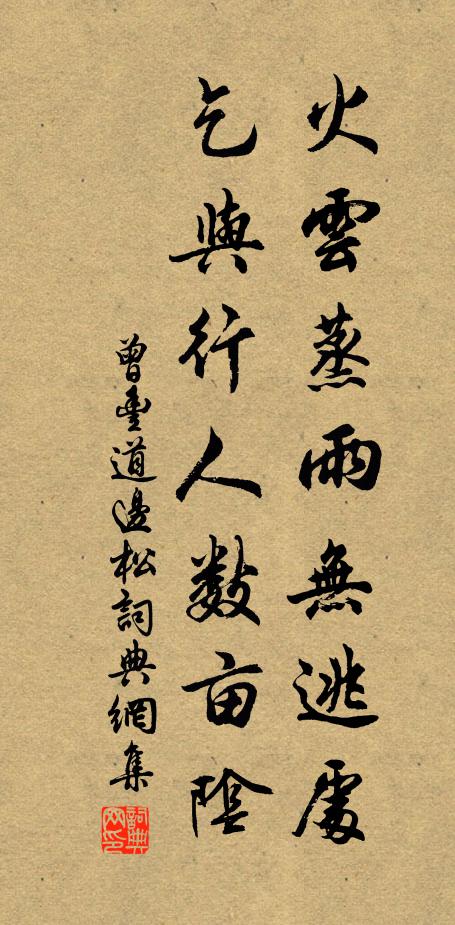 火雲蒸雨無逃處
乞與行人数亩陰
曾豐道邊松詞典網集
詞典网印